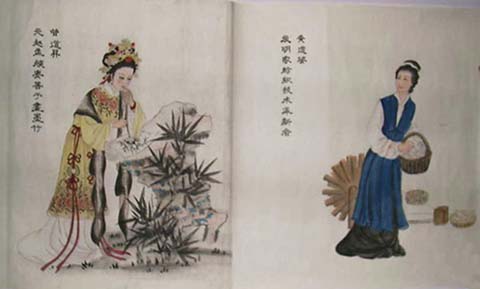 黄道婆
發明家紡織技术革新者
管道昇
元趙孟頫妻善于畫墨竹